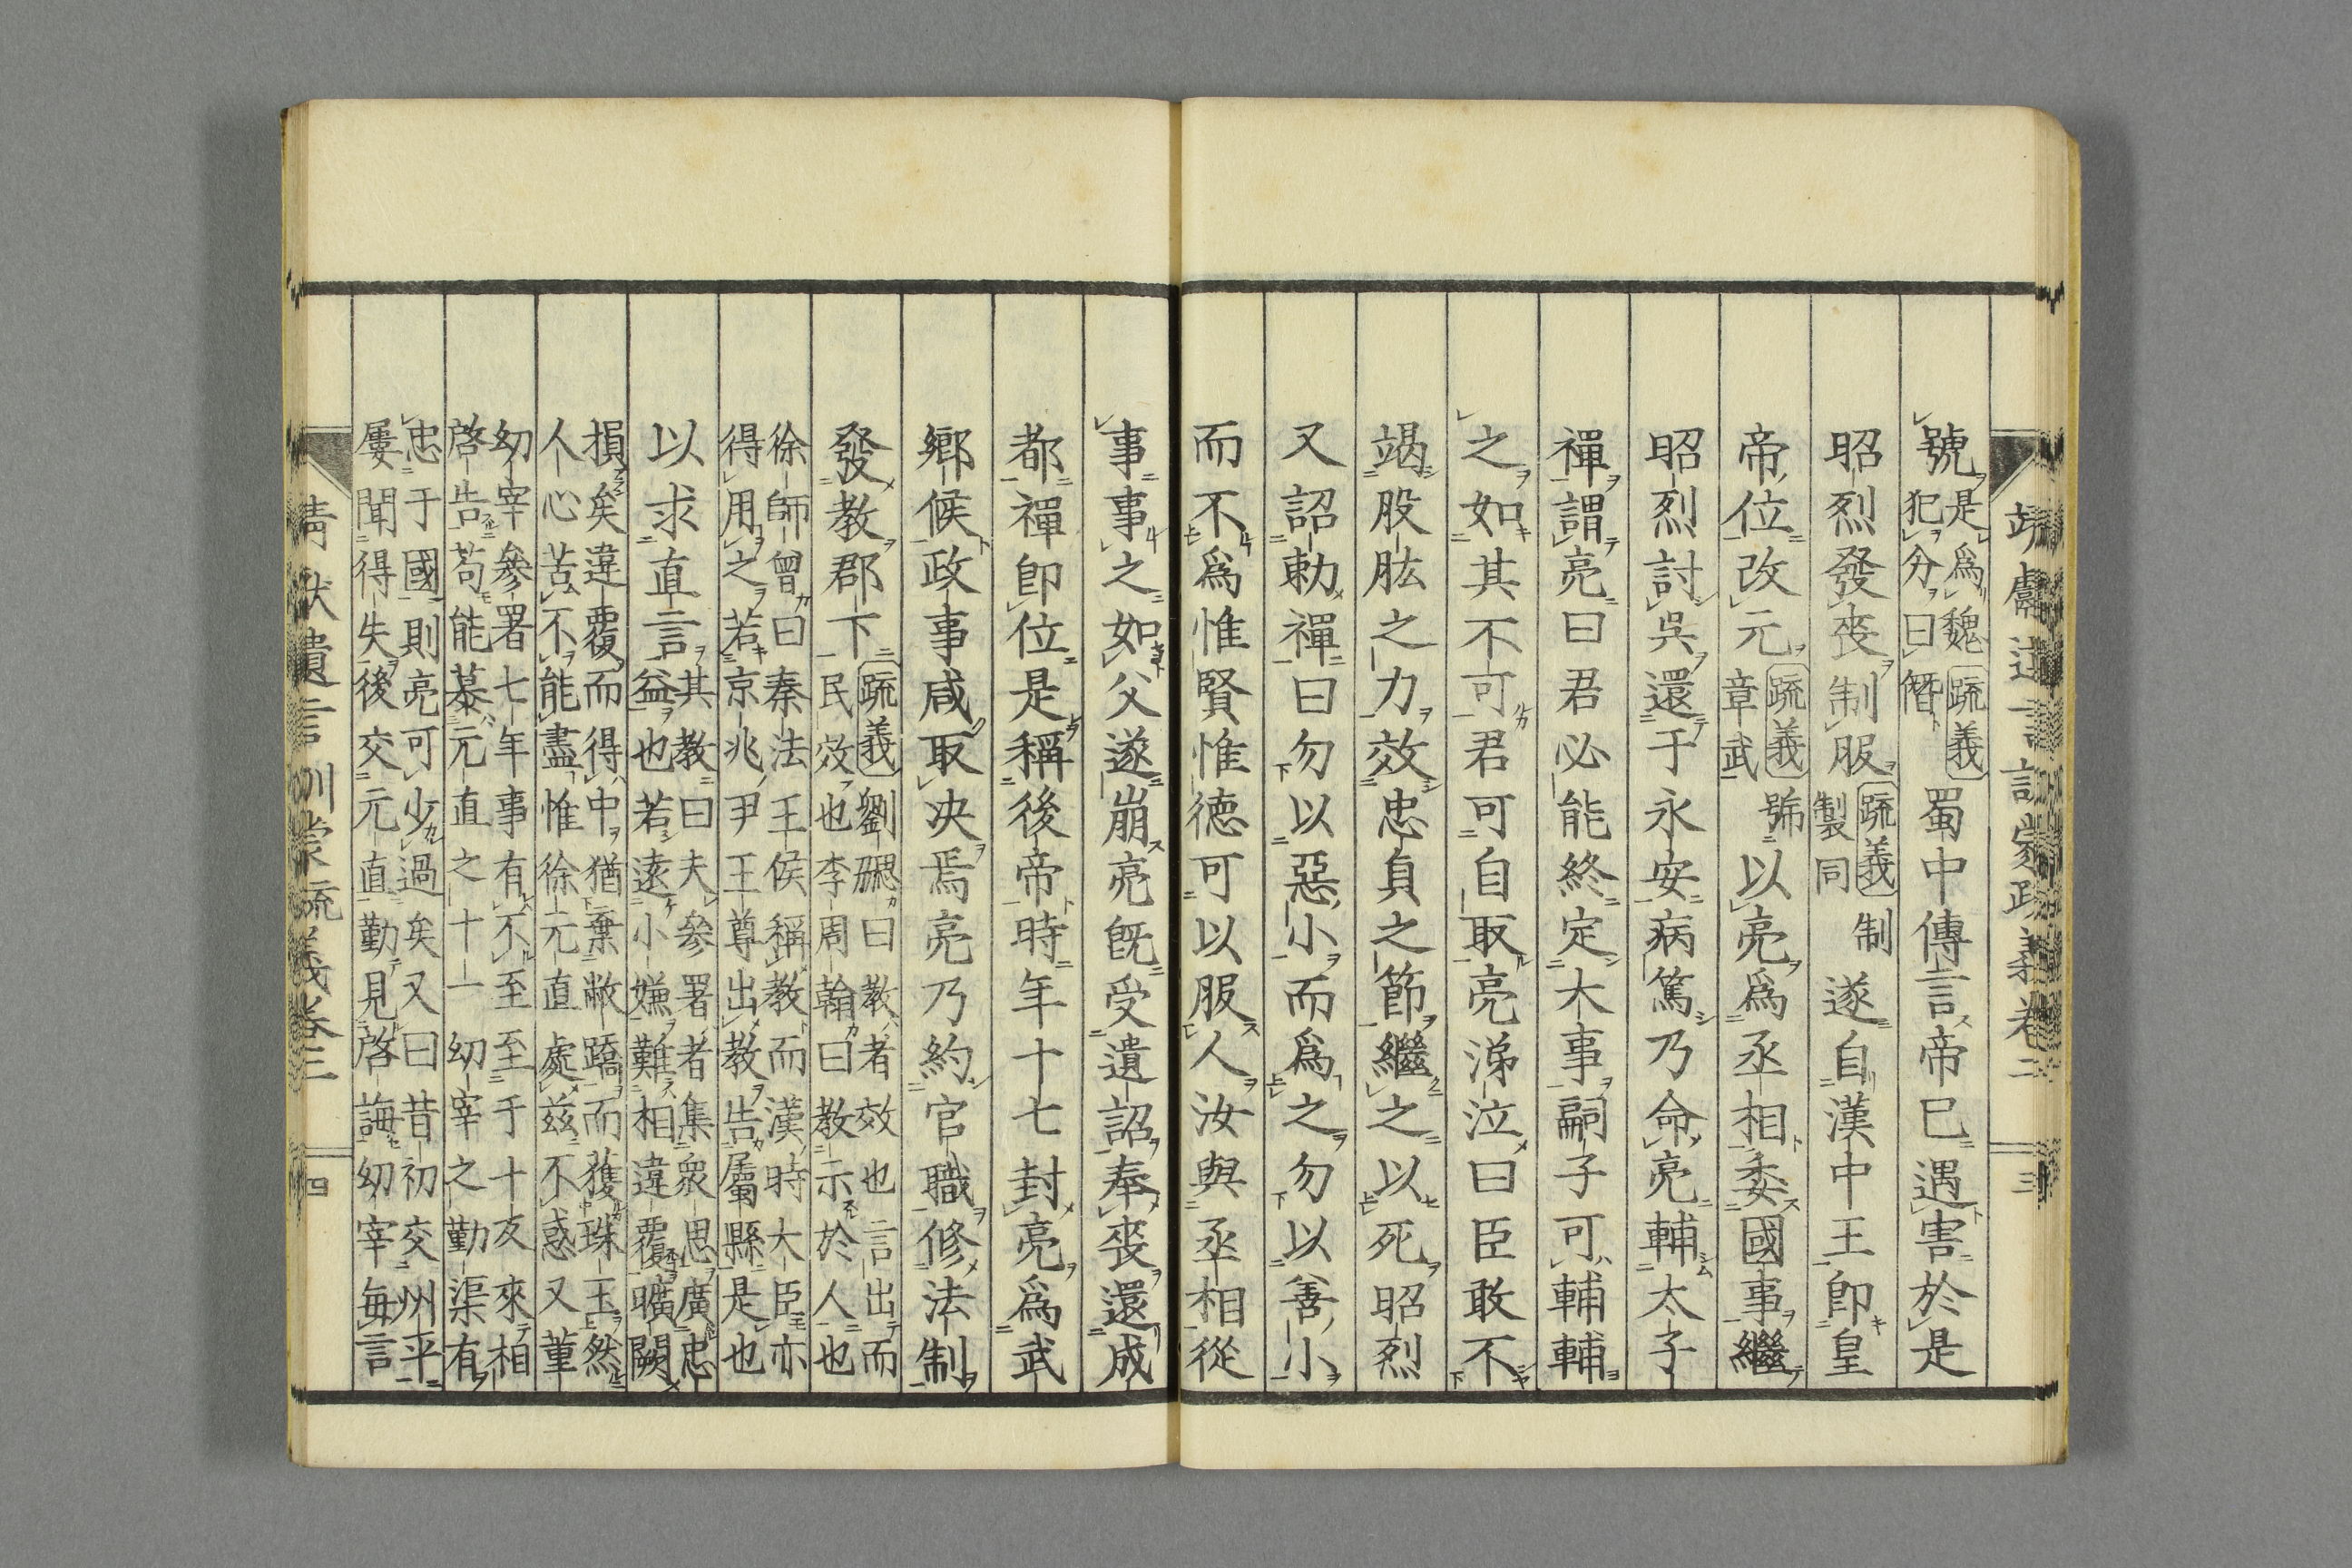 靖獻遺言訓蒙疏義卷三 三
號
是爲魏疏義
犯分曰僭
蜀中傳言帝已遇害於是
昭烈發喪制服
疏義制
製同
遂自漢中王即皇
帝位改元
疏義號
章武
以亮爲丞相委國事繼
昭烈討吳還于永安病篤乃命亮輔太子
禪謂亮曰君必能終定大事嗣子可輔輔
之如其不可君可自取亮涕泣曰臣敢不
竭股肱之力效忠貞之節繼之以死昭烈
又詔勅禪曰勿以惡小而爲之勿以善小
而不爲惟賢惟德可以服人汝與丞相從
事事之如父遂崩亮既受遺詔奉喪還成
都禪即位是稱後帝時年十七封亮爲武
鄉侯政事咸取决焉亮乃約官職修法制
發教郡下
疏義劉勰曰教者效也言出而
民效也李周翰曰教示於人也
徐師曾曰秦法王侯稱教而漢時大臣亦
得用之若京兆尹王尊出教告屬縣是也
以求直言
其教曰夫參署者集衆思廣忠
益也若遠小嫌難相違覆曠闕
損矣違覆而得中猶棄敝蹻而獲珠玉然
人心苦不能盡惟徐元直處茲不惑又董
幼宰參署七年事有不至至于十反來相
啓告苟能慕元直之十一幼宰之勤渠有
忠于國則亮可少過矣又曰昔初交州平
屢聞得失後交元直勤見啓誨幼宰每言
靖獻遺言訓蒙疏義卷三 四